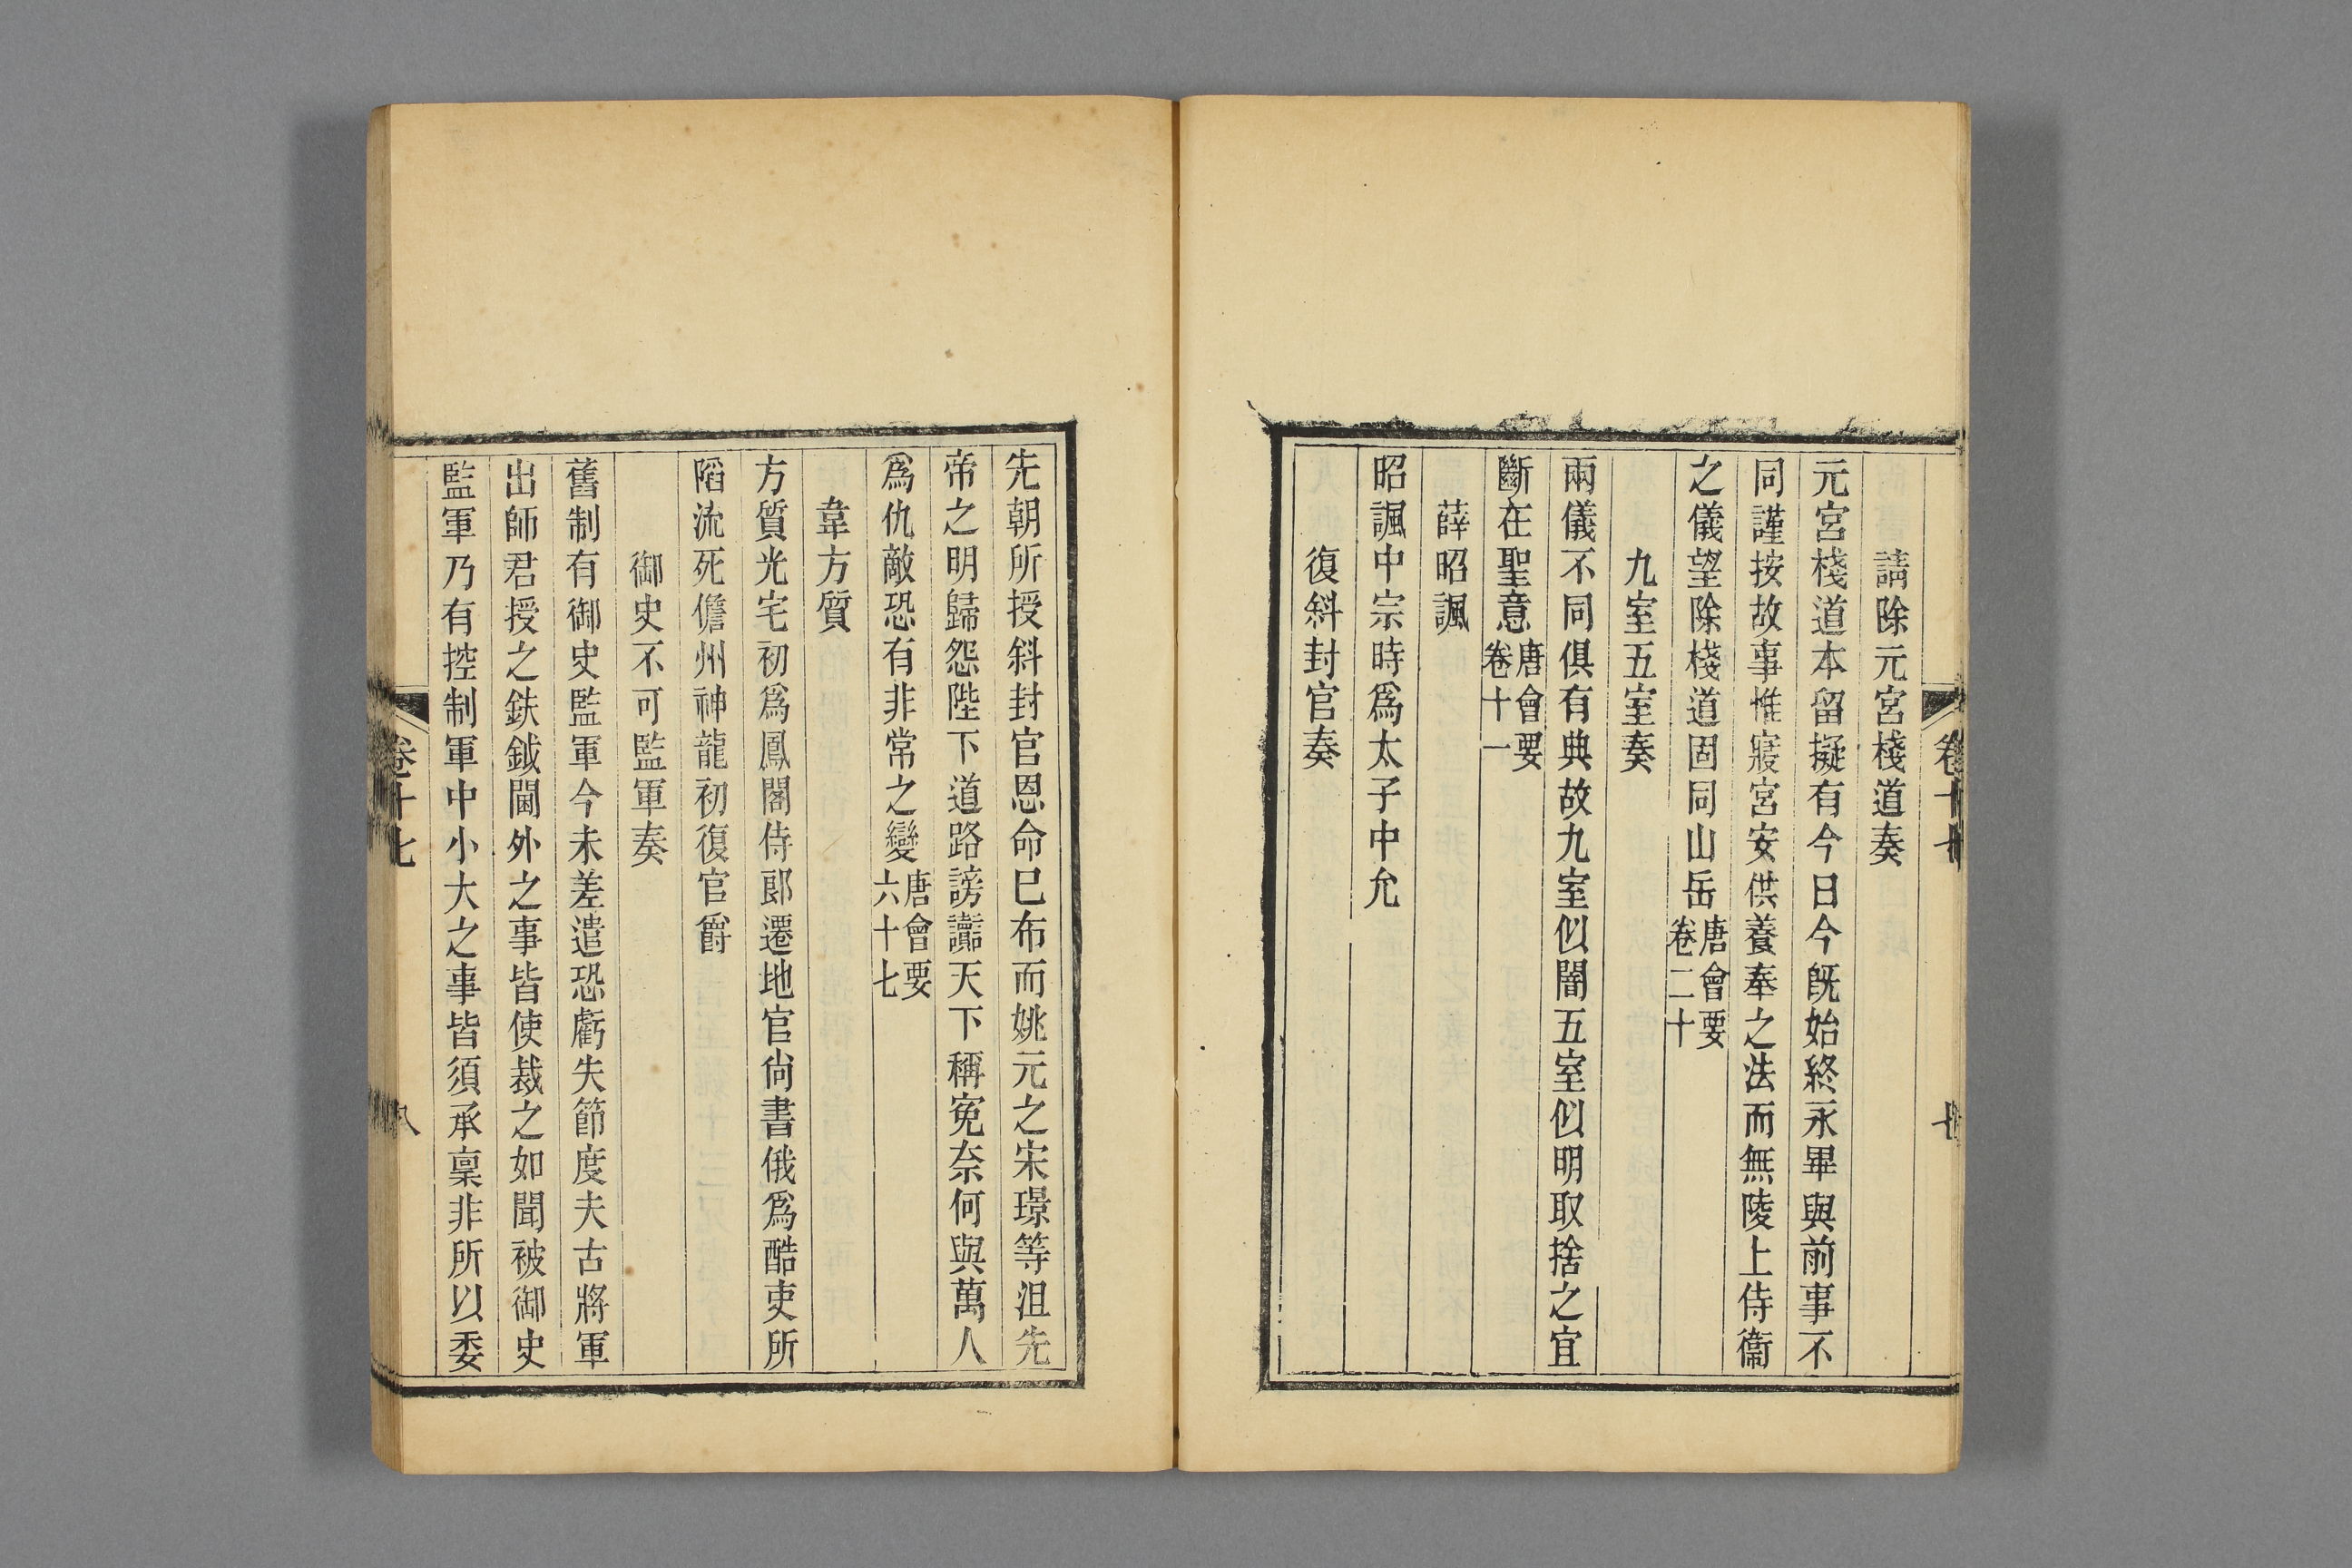 請除元宮棧道奏
元宮棧道本留擬有今日今旣始終永畢與前事不
同謹按故事惟寢宮安供養奉之法而無陵上侍衞
之儀望除棧道固同山岳唐會要卷二十
九室五室奏
兩儀不同俱有典故九室似闇五室似明取捨之宜
斷在聖意唐會要卷十一
薛昭諷
昭諷中宗時爲太子中允
復斜封官奏
先朝所授斜封官恩命巳布而姚元之宋璟等沮先
帝之明歸怨陛下道路謗讟天下稱寃奈何與萬人
爲仇敵恐有非常之變唐會要六十七
韋方質
方質光宅初爲鳳閣侍郞遷地官尙書俄爲酷吏所
陷流死儋州神龍初復官爵
御史不可監軍奏
舊制有御史監軍今未差遣恐虧失節度夫古將軍
出師君授之鈇鉞閫外之事皆使裁之如聞被御史
監軍乃有控制軍中小大之事皆須承稟非所以委
卷十七
八